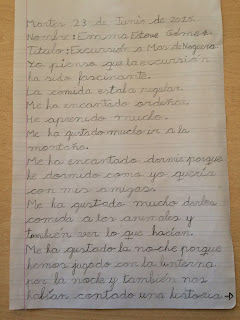 Martes 23 de Junio de 2025.
Nombre: Emma Esteve Gómez
Título: Excursión a Mas de Noguera
Yo pienso que la excursión
ha sido fascinante.
La comida estaba regular.
Me ha encantado ordeñar.
He aprendido mucho.
Me ha gustado mucho ir a la
montaña.
Me ha encantado dormir porque
he dormido como yo quería
con mis amigas.
Me ha gustado mucho darles
comida a los animales y
también ver lo que hacían.
Me ha gustado la noche porque
hemos jugado con la linterna
por la noche y también nos
habían contado una historia